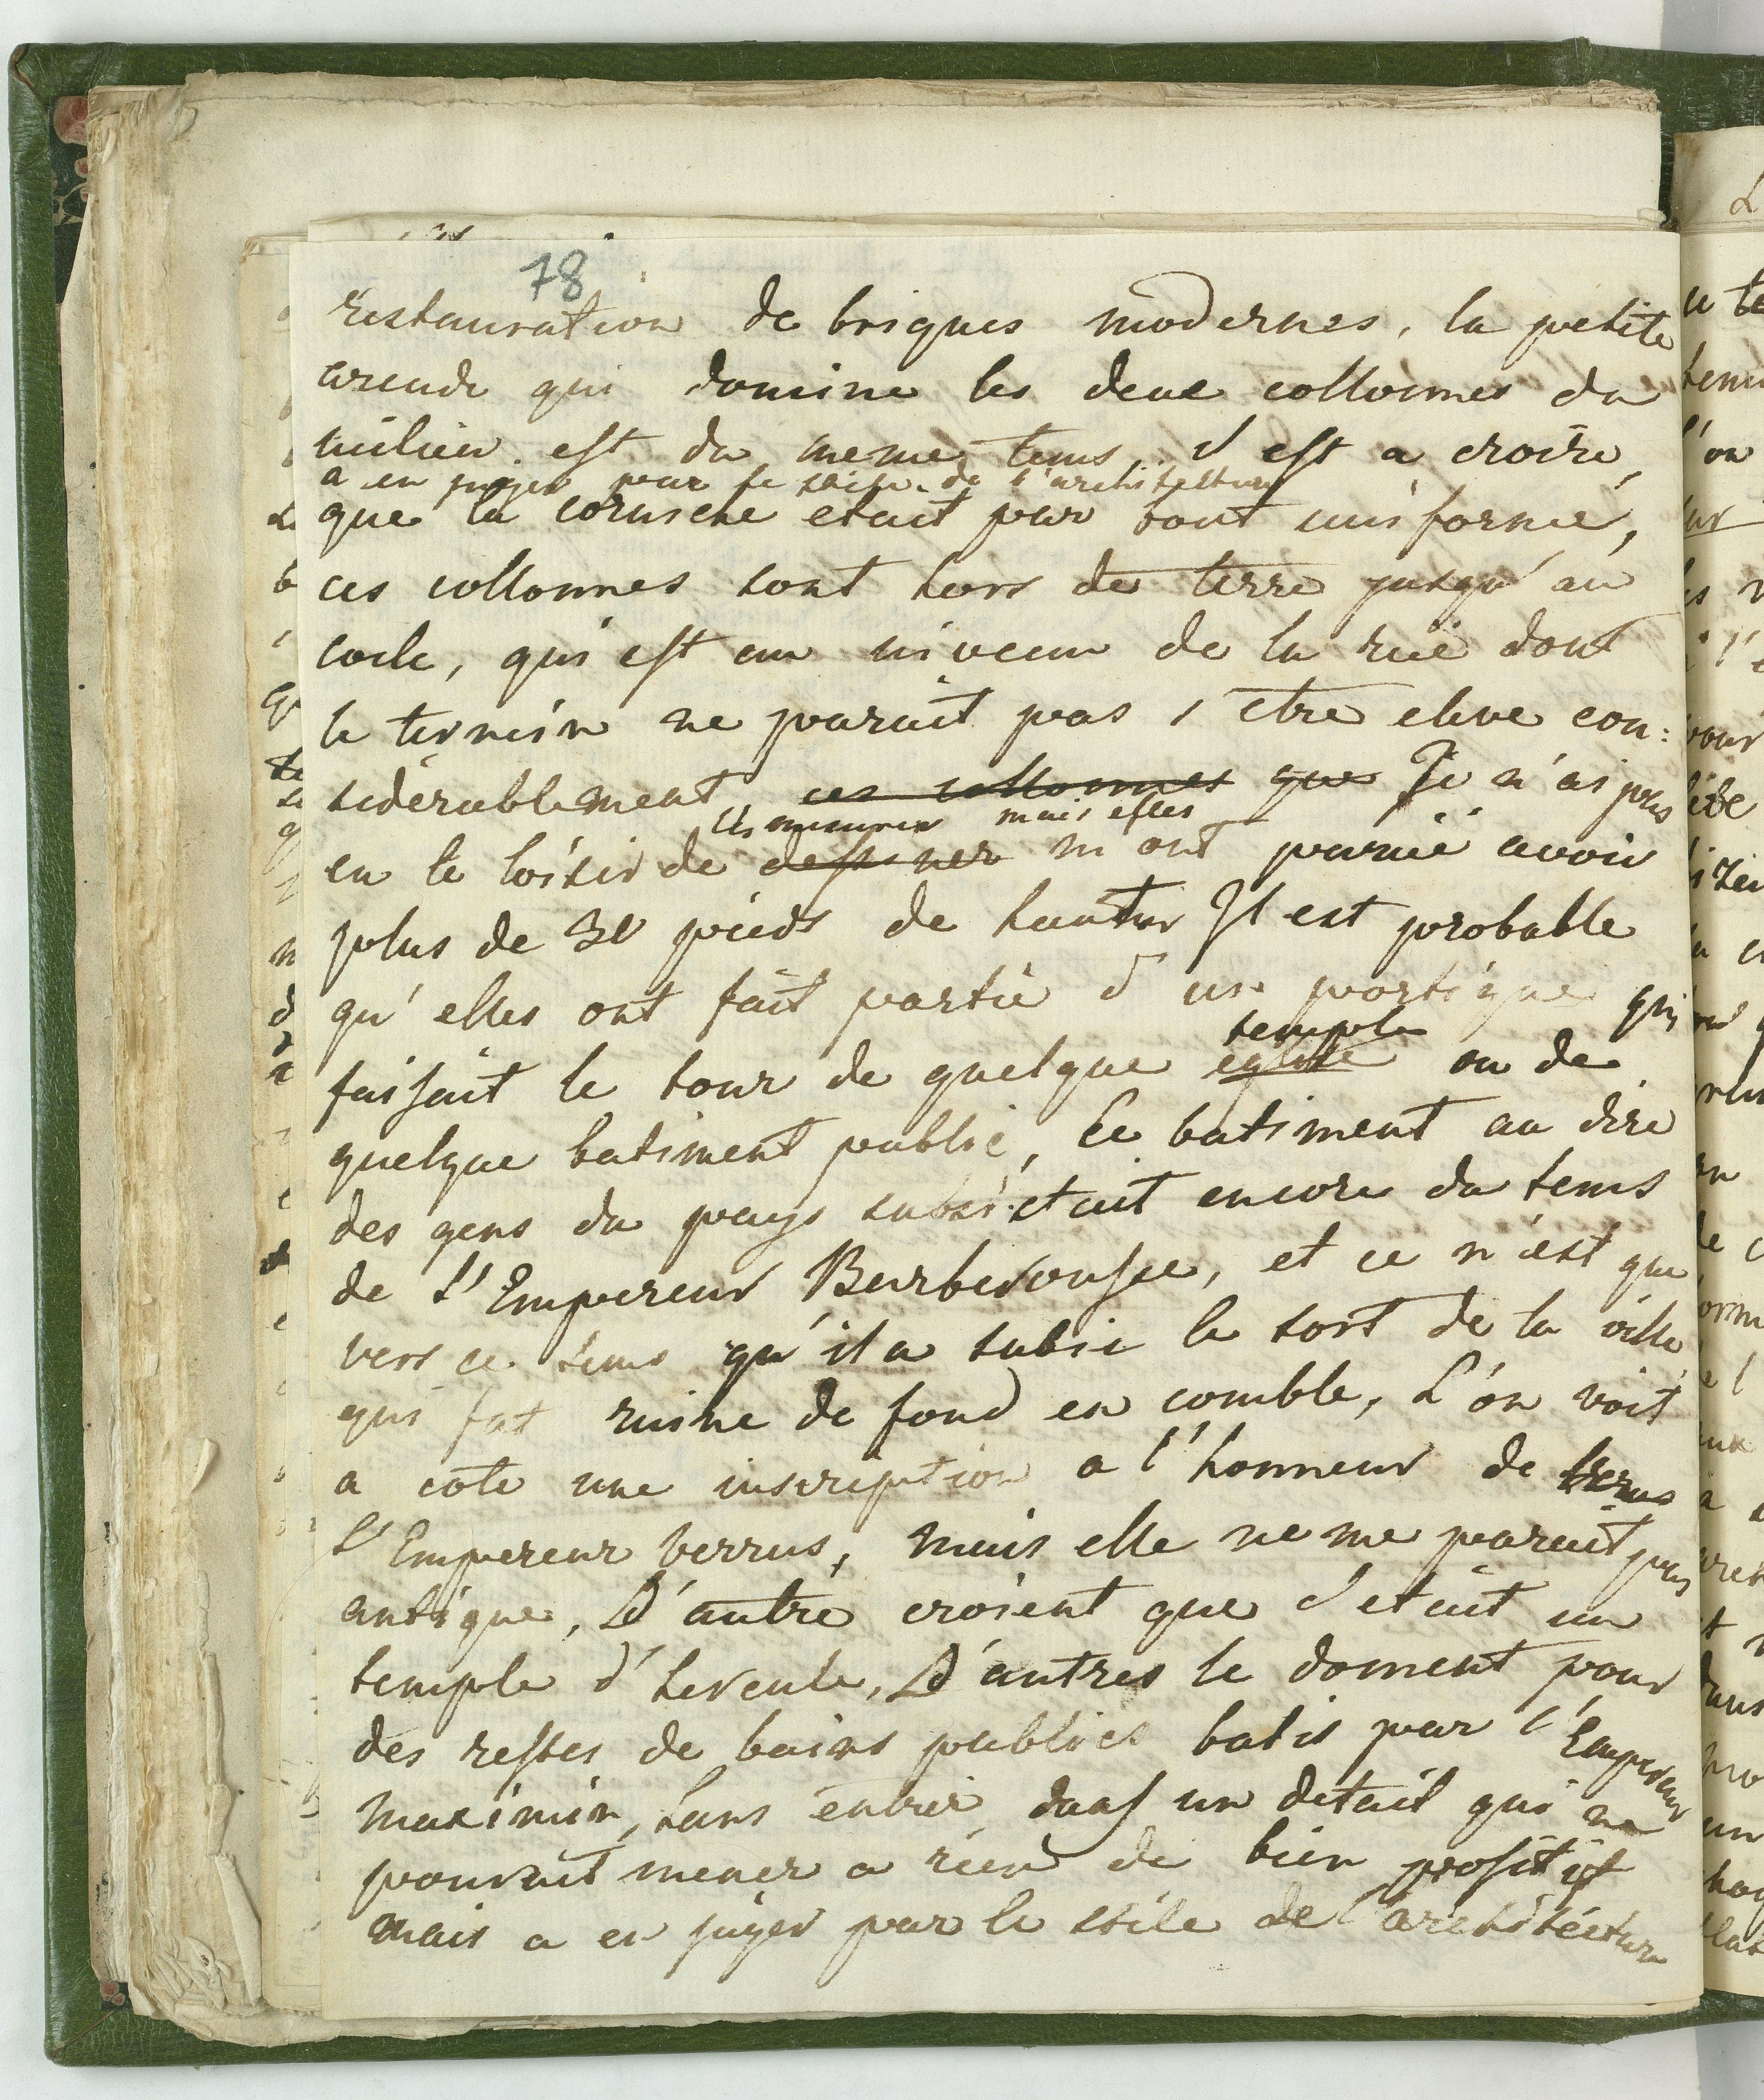 78
restauration de briques modernes, la petite
arcade qui domine les deux collonnes du
milieu est du meme tems, il est a croire,
a en juger par le stile de l'architecture
que la corniche etait par tout uniforme,
ces collonnes sont hors de terre jusqu'au
socle, qui est au niveau de la rüe dont
le terrein ne parait pas s'etre elevé con:
sidérablement, ces collonnes que Je n'ai pas
les mesurer mais elles
eu le loisir de dessiner m'ont paruë avoir
plus de 30 pieds de hauteur Il est probable
qu'elles ont fait partie d'un portique qui
temple
faisait le tour de quelque eglise ou de
quelque batiment public, Ce batiment au dire
des gens du pays subsistait encore du tems
de l'Empereur Barberousse, et ce n'est que
vers ce tems qu'il a subie le sort de la ville
qui fut ruiné de fond en comble, L'on voit
a coté une inscription a l'honneur de
L'Empereur verrus, mais elle ne me parait pas
antique, D'autre croient que c'etait un
temple d'hercule, D'autres le donnent pour
des restes de bains publics batis par l'Empereur
Maximin, sans entrer dans un detail qui ne
pourrait mener a rien de bien positif
mais a en juger par le stile de l'architecture